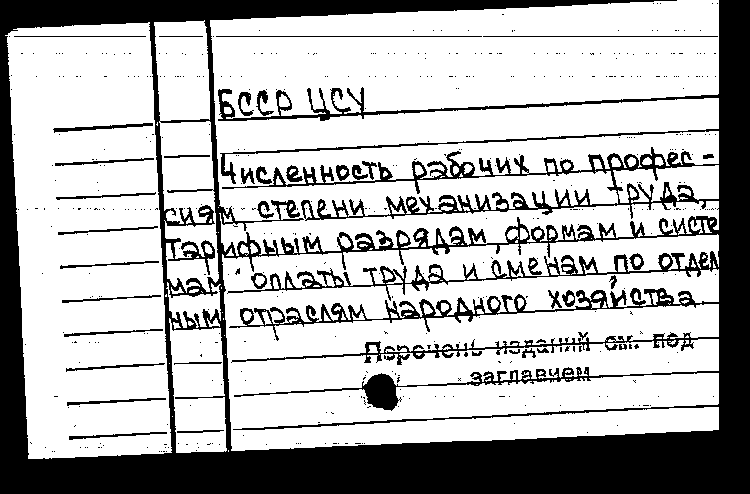 БССР ЦСУ
Численность рабочих по профес-
сиям, степени механизации труда,
тарифным разрядам, формам и систе
мам оплаты труда и сменам, по отдел
ным отраслям народного хозяйства.
Перечень изданий см. под
заглавием